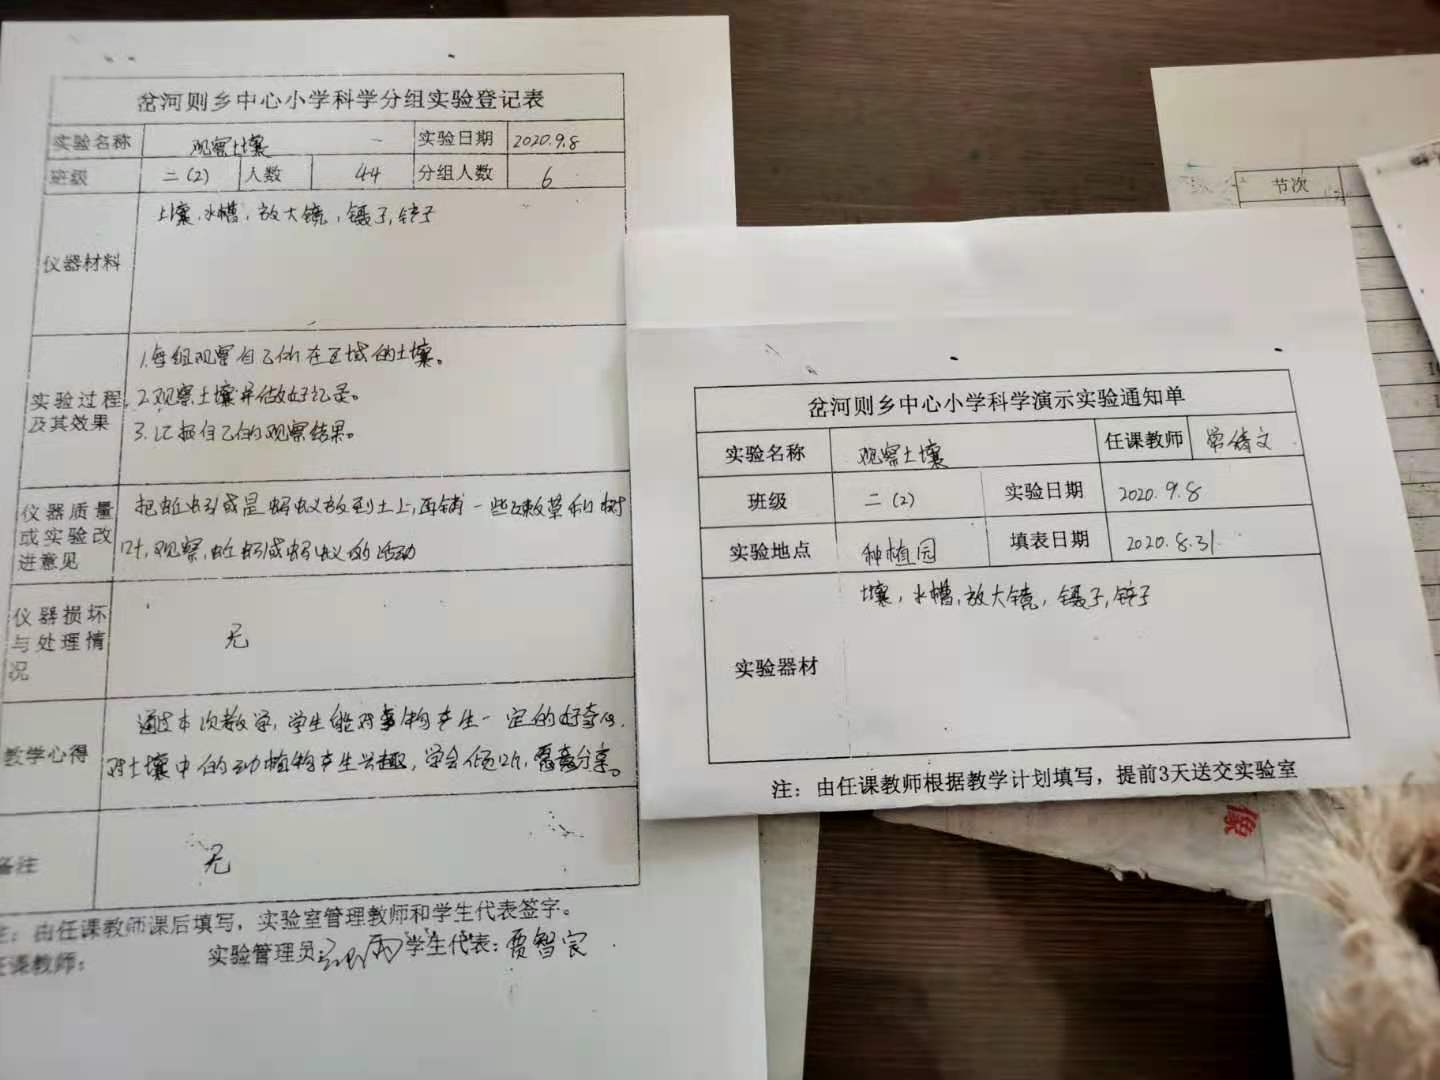 岔河则乡中心小学科学分组实验登记表
实验名称 观察土壤 实验日期 2020.9.8
班级 二(2) 人数 44 分组人数 6
仪器材料
土壤,水槽,放大镜,镊子,铲子
实验过程及其效果
1.每组观察自己所在区域的土壤。
2.观察土壤并做好记录。
3.汇报自己的观察结果。
仪器质量或实验改进意见
把蚯蚓或是蚂蚁放到土上,再铺一些嫩草和树
叶,观察,蚯蚓或蚂蚁的活动
仪器损坏与处理情况
无
教学心得
通过本次教学,学生能对事物产生一定的好奇心.
对土壤中的动植物产生兴趣,学会倾听,愿意分享。
备注
无
注:由任课教师课后填写,实验室管理教师和学生代表签字。
任课教师: 实验管理员 学生代表:贾智宸
岔河则乡中心小学科学演示实验通知单
实验名称 观察土壤 任课教师
班级 二(2) 实验日期 2020.9.8
实验地点 种植园 填表日期 2020.8.31
实验器材
土壤,水槽,放大镜,镊子,铲子
注:由任课教师根据教学计划填写,提前3天送交实验室
节次
像